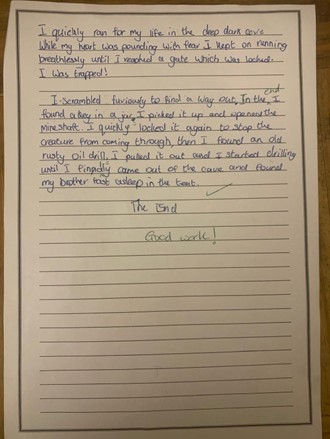 I quickly ran for my life in the deep dark cave
while my heart was pounding with fear I kept on running
breathlessly until I reached a gate which was locked.
I was trapped!
end
I scrambled furiously to find a way out, In the, I
found a key in a jar, I picked it up and opened the
Mineshaft. I quickly locked it again to stop the
creature from coming through, then I found an old
rusty oil drill, I pulled it out and I started drilling
until I finally came out of the cave and found
my brother fast asleep in the tent.
The End
Good work!